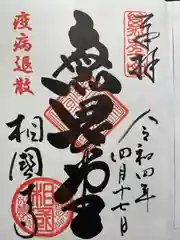 奉拝
令和四年
四月十七日
無畏堂
疫病退散
相國寺